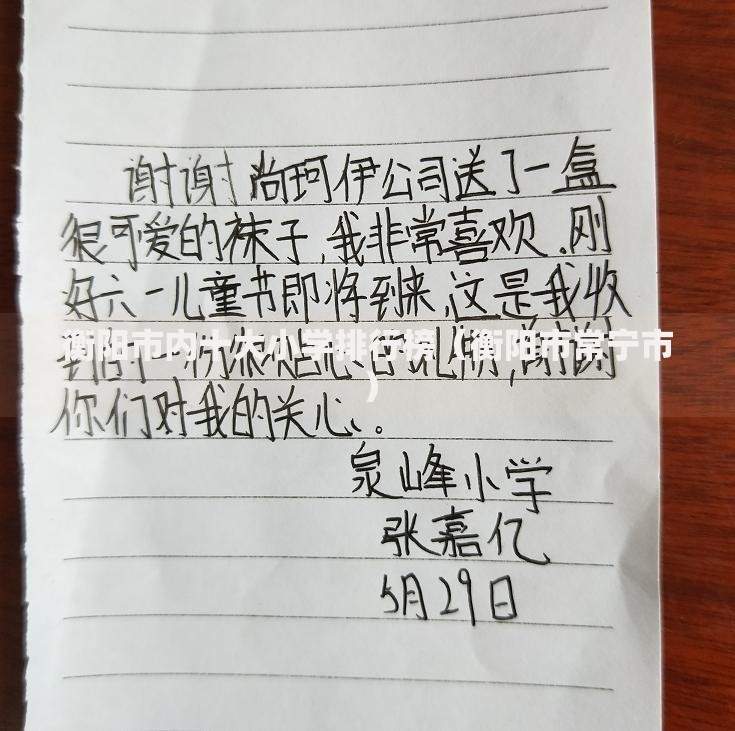 谢谢尚珂伊公司送了一盒
很可爱的袜子,我非常喜欢.刚
好六一儿童节即将到来,这是我收
到的一份
衡阳市内十大小学排行榜(衡阳市常宁市
)
你们对我的关心。
泉山峰小学
张嘉亿
5月29日